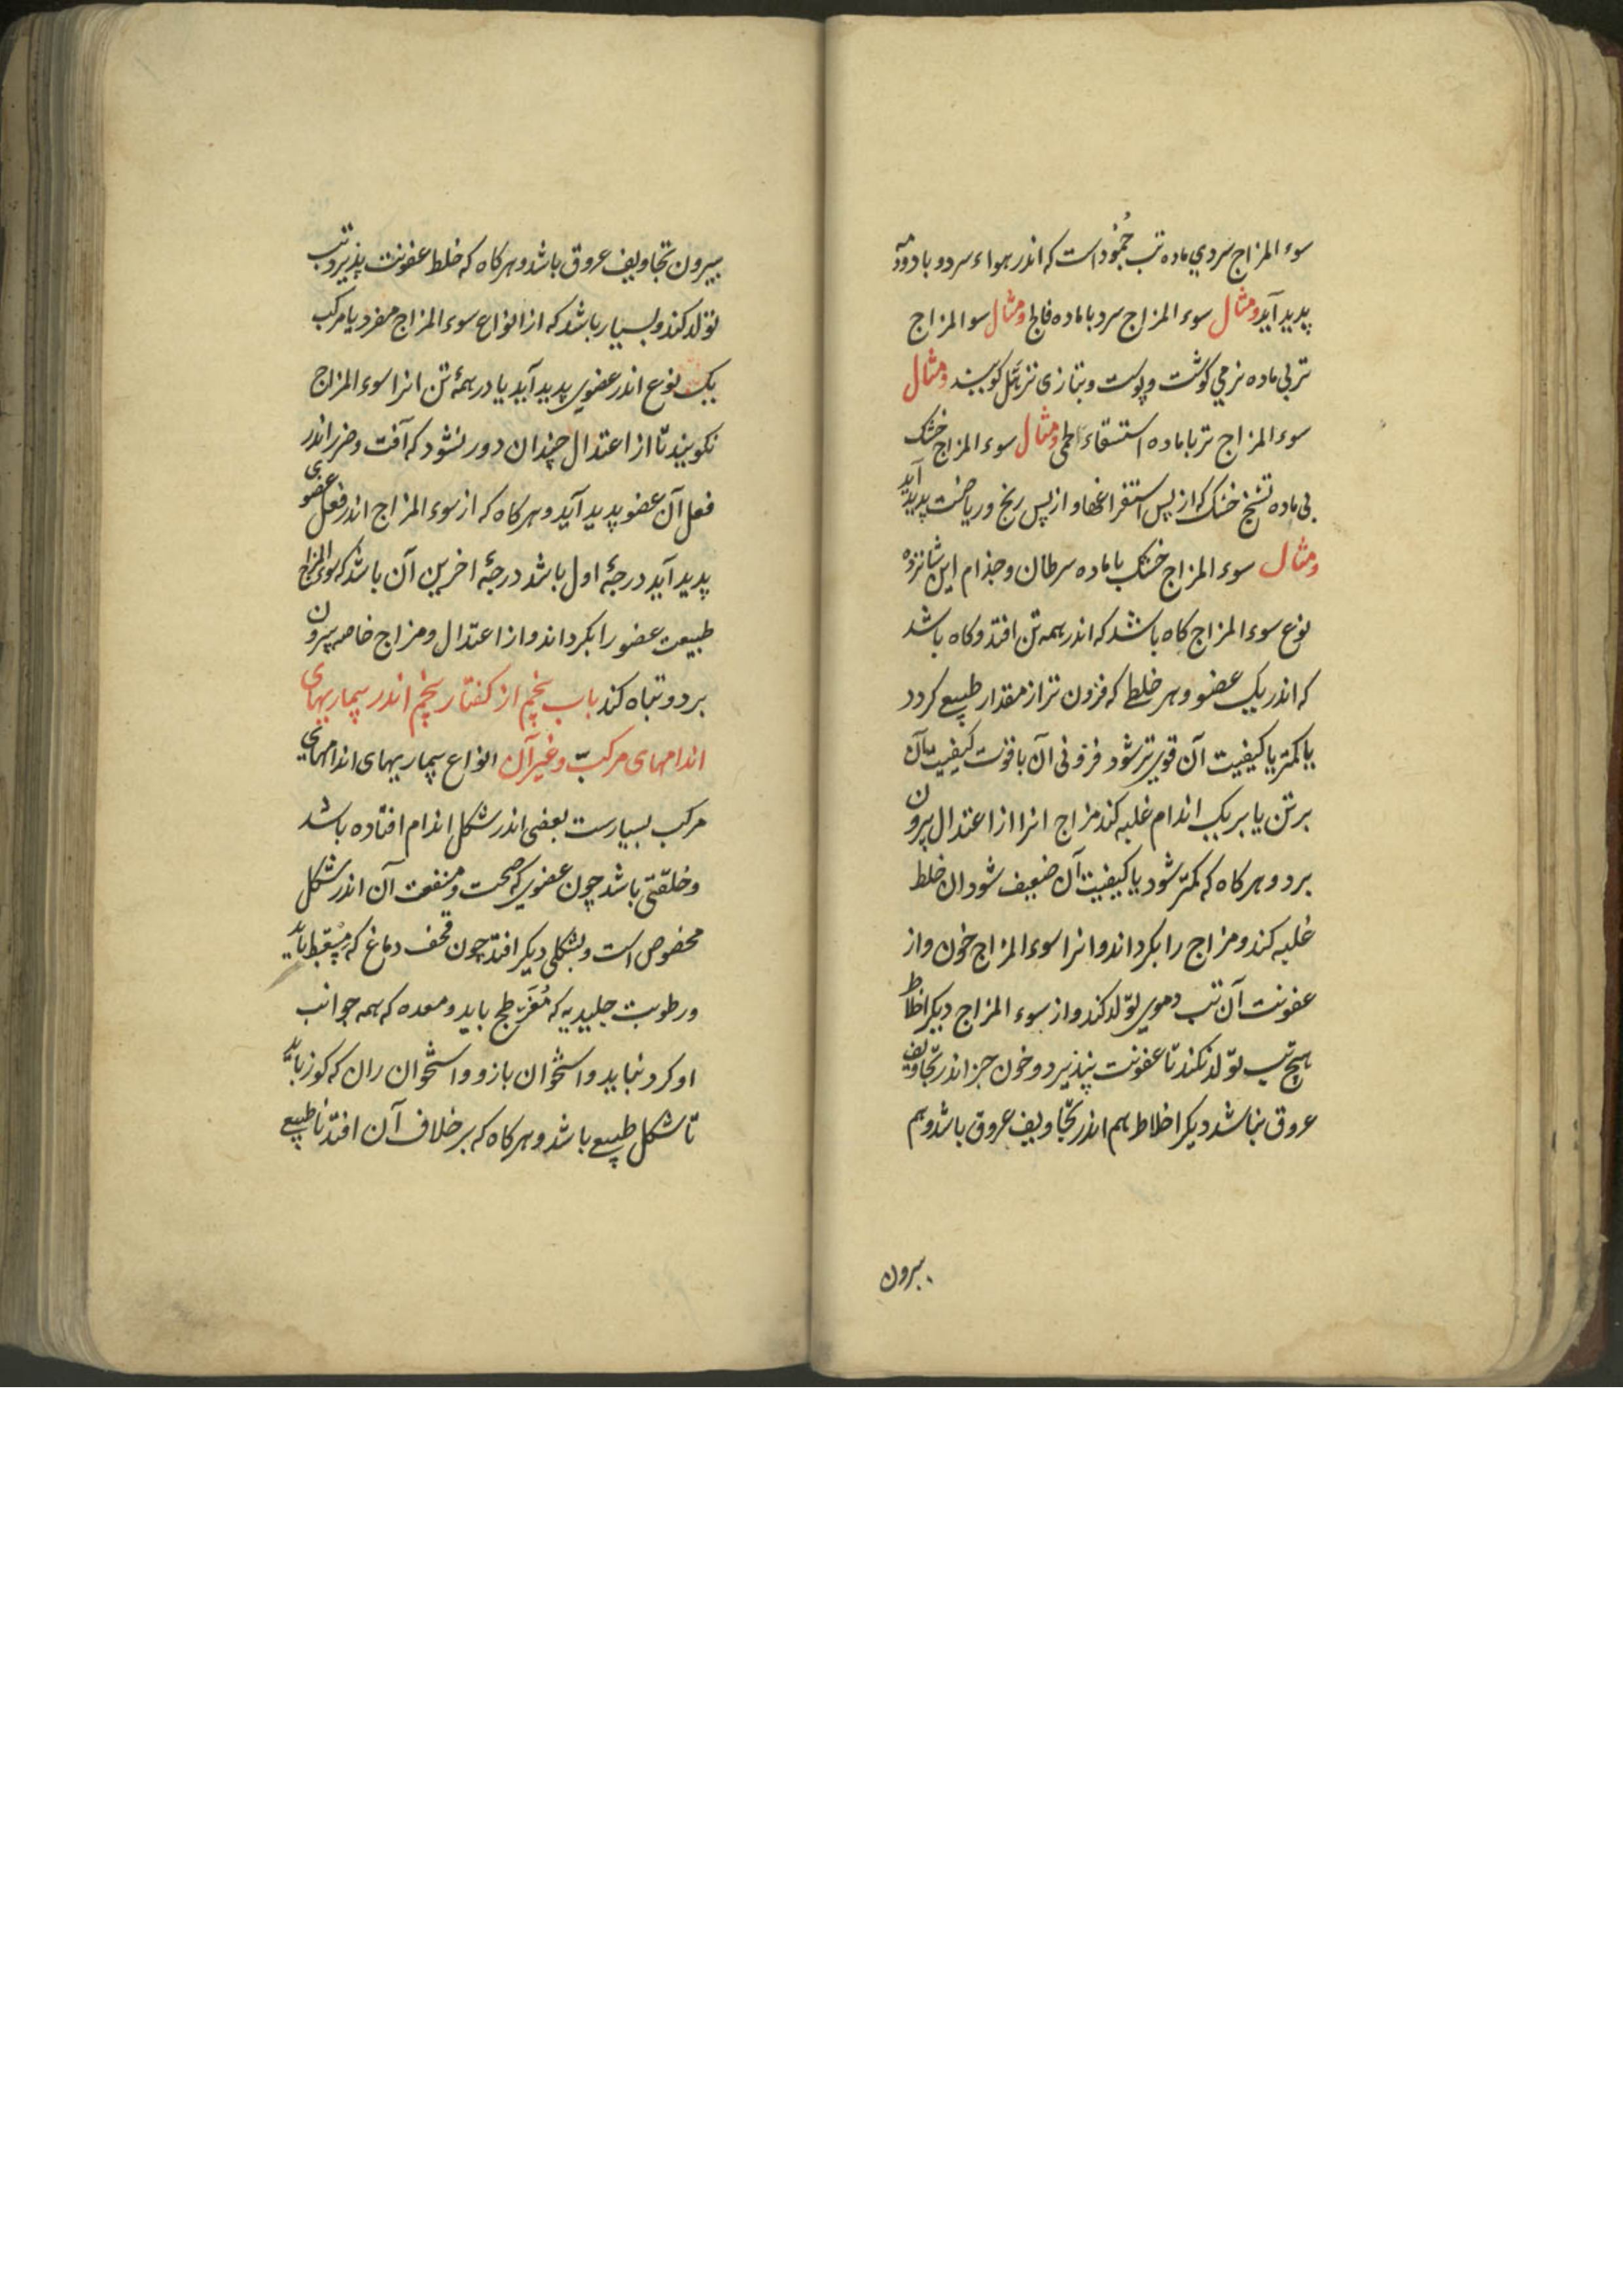 سوء المزاج سردبی ماده تب جُمُود است که اندر هواء سرد و باد و دمه
پدید آید ومثال سوء المزاج سرد با ماده فالج ومثال سو المزاج
تربی ماده نرمی کوشت و پوست و بتازی ترهّل کویند ومثال
سوء المزاج تر با ماده استسقاء لحمی ومثال سوء المزاج خشک
بی ماده تشنج خشک که از پس استفراغها و از پس رنج و ریاضت پدید آید
ومثال سوء المزاج خشک با ماده سرطان و جذام این شانزده
نوع سوء المزاج کاه باشد که اندر همه تن افتد و کاه باشد
که اندر یک عضو و هر خلط که فزون تر از مقدار طبیعی کردد
یا کمتر یا کیفیت آن قوی تر شود فزونی آن با قوت کیفیت آن
بر تن یا بر یک اندام غلبه کند مزاج انرا از اعتدال بیرون
برد و هر کاه که کمتر شود یا کیفیت آن ضعیف شود ان خلط
غلبه کند و مزاج را بکرداند و انرا سوء المزاج خون و از
عفونت آن تب دموی تولّد کند و از سوء المزاج دیکر اخلاط
هیچ تب تولّد نکند تا عفونت نپذیرد و خون جز اندر تجاویف
عروق نباشد دیکر اخلاط هم اندر تجاویف عروق باشد و هم
بیرون
بیرون تجاویف عروق باشد و هر کاه که خلط عفونت پذیرد تب
تولد کند و بسیار باشد که از انواع سوء المزاج مفرد یا مرکب
یک نوع اندر عضوی پدید آید یا در همهٔ تن انرا سوء المزاج
نکویند تا از اعتدال چندان دور نشود که آفت و ضرر اندر
فعل آن عضو پدید آید و هر کاه که از سوء المزاج اندر فعل عضوی
پدید آید درجهٔ اول باشد درجهٔ اخرین آن باشد که سوء المزاج
طبیعت عضو را بکرداند و از اعتدال و مزاج خاصه بیرون
برد و تباه کند باب پنجم از کفتار پنجم اندر بیماریهای
اندامهای مرکبّ و غیر آن انواع بیماریهای اندامهای
مرکب بسیارست بعضی اندر شکل اندام افتاده باشد
و خلقتی باشد چون عضوی که صحت و منفعت آن اندر شکل
مخصوص است و بشکلی دیکر افتد چون قحف دماغ که باید
و رطوبت جلیدیه که مُفَرطح باید و معده که همه جوانب
او کرد نباید و استخوان بازو و استخوان ران که کوز باید
تا شکل طبیعی باشد و هر کاه که بر خلاف آن افتد نا طبیعی